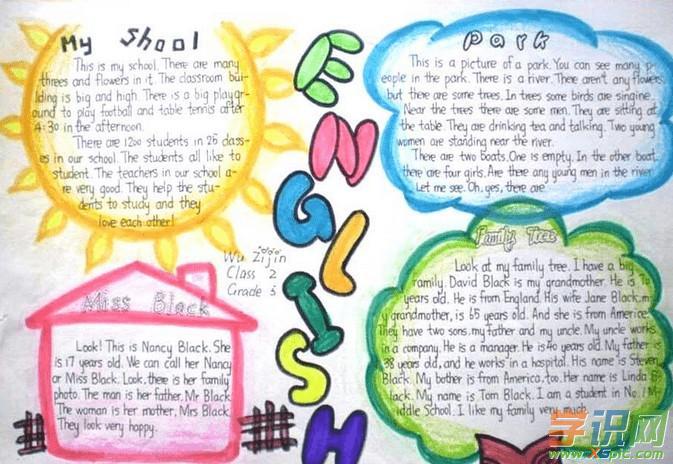 My Shool
This is my school. There are many
threes and flowers in it. The classroom bui-
lding is big and high. There is a big playgr-
ound to play football and table tennis after
4:30 in the afternoon.
There are 1200 students in 25 class-
es in our school. The students all like to
student. The teachers in our school a-
re very good. They help the stu-
dents to study and they
love each other!
ENGLISH
Park
This is a picture of a park. You can see many p-
eople in the park. There is a river. There aren't any flowers,
but there are some trees. In trees some birds are singine.
Near the trees there are some men. They are sitting at
the table. They are drinking tea and talking. Two young
women are standing near the river.
There are two boats. One is empty. In the other boat,
there are four girls. Are there any young men in the river
Let me see. Oh, yes, there are
Wu Zijin
Class 2
Grade 3
Miss Black
Look! This is Nancy Black. She
is 17 years old. We can call her Nancy
or Miss Black. Look, there is her family
photo. The man is her father, Mr Black
The woman is her mother, Mrs Black.
They look very happy.
Family Tree
Look at my family tree. I have a big
family. David Black is my grandmother. He is 70
years old. He is from England. His wife Jane Black, m-
y grandmother, is 65 years old. And she is from Americe.
They have two sons, my father and my uncle. My uncle works
in a company. He is a manager. He is 40 years old. My father is
38 years old, and he works in a hospital. His name is Steven
Black. My bother is from America, too. Her name is Linda B-
lack. My name is Tom Black. I am a student in No.1 M-
iddle School. I like my family very much.
学识网
www.XSpic.com